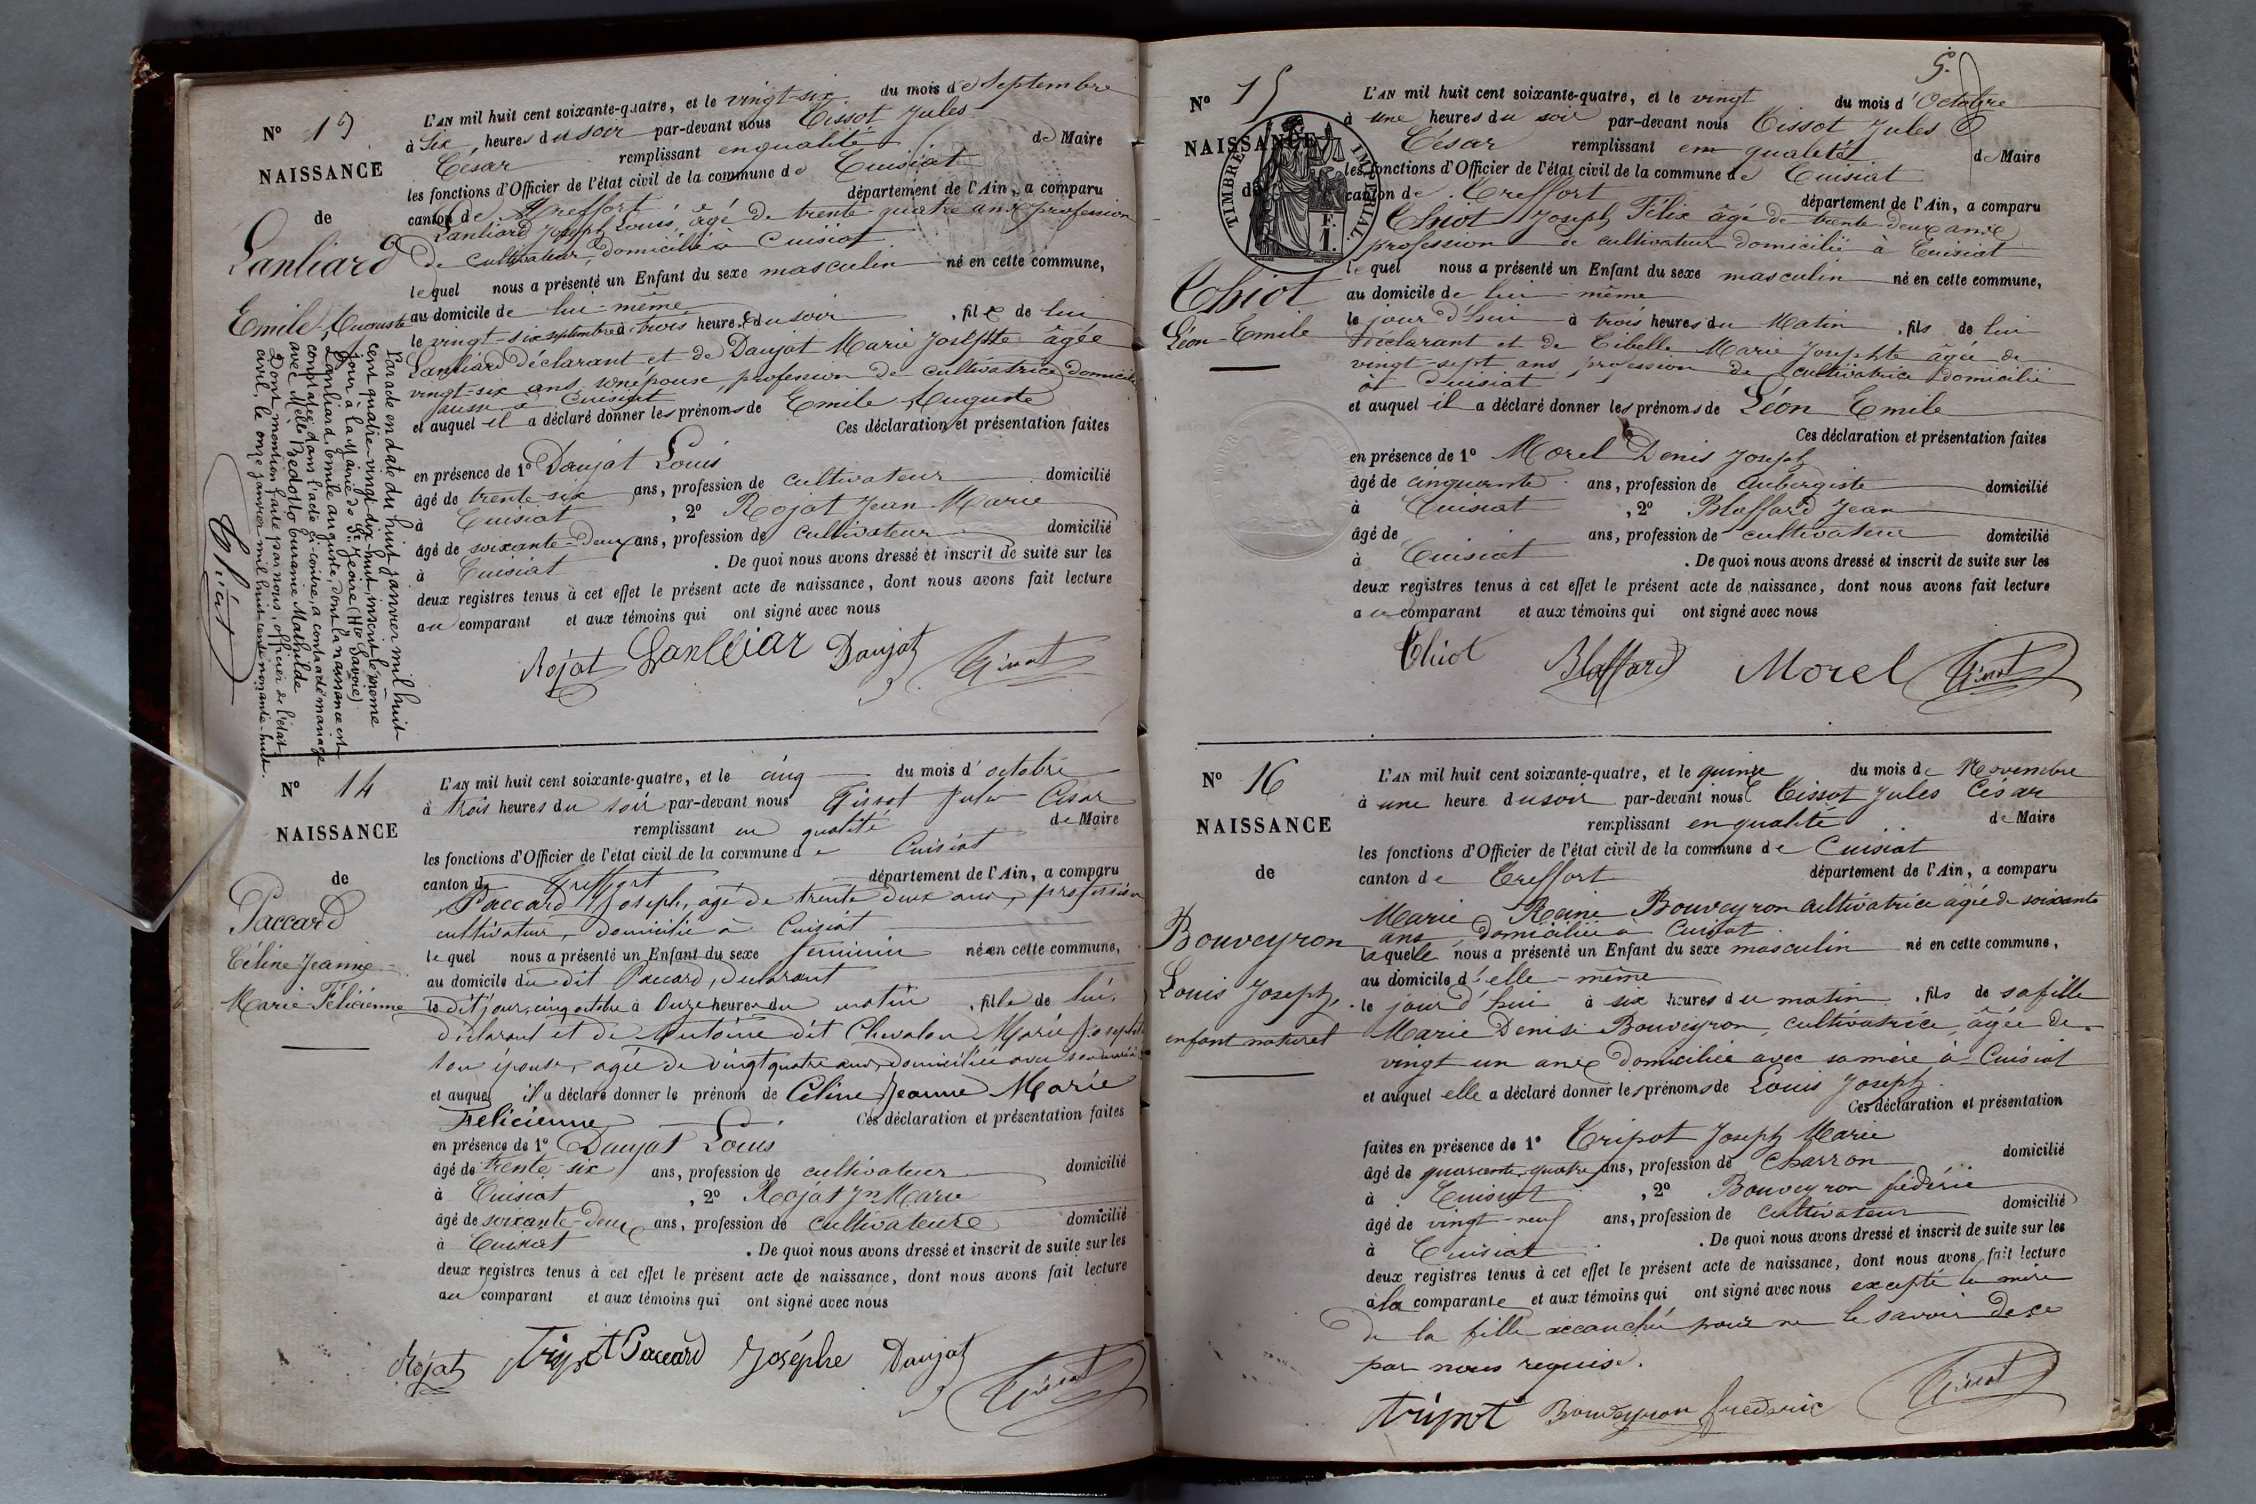 N° 13
NAISSANCE
de
Lanliard
Emile Auguste
L'AN mil huit cent soixante-quatre, et le vingt-six du mois de Septembre
à six heures du soir par-devant nous Tissot Jules
César remplissant en qualité de Maire
les fonctions d'Officier de l'état civil de la commune de Cuisiat
canton de Treffort département de l'Ain, a comparu
Lanliard Joseph Louis, âgé de trente quatre ans profession
de cultivateur, domicilié à Cuisiat
lequel nous a présenté un Enfant du sexe masculin né en cette commune,
au domicile de lui-même
le vingt-six septembre à trois heures du soir, fils de lui
Lanliard déclarant et de Daujat Marie Josephte âgée
vingt-six ans, son épouse, profession de cultivatrice domicilié
aussi à Cuisiat
et auquel il a déclaré donner les prénoms de Emile Auguste
Ces déclaration et présentation faites
en présence de 1° Daujat Louis
âgé de trente-six ans, profession de cultivateur domicilié
à Cuisiat, 2° Rojat Jean-Marie
âgé de soixante-deux ans, profession de cultivateur domicilié
à Cuisiat. De quoi nous avons dressé et inscrit de suite sur les
deux registres tenus à cet effet le présent acte de naissance, dont nous avons fait lecture
au comparant et aux témoins qui ont signé avec nous
Rojat Lanliar Daujat Tissot
Par acte en date du huit janvier mil huit
cent quatre-vingt-dix-huit, inscrit le même
jour à la Mairie de St Jeoire (Hte Savoie)
Lanliard, Emile auguste, dont la naissance est
constatée dans l'acte ci-contre, a contracté mariage
avec Melle Bedolo buranie Mathilde
Dont mention faite par nous, officier de l'état
civil, le onze janvier mil huit cent nonante-huit.
Chiot
N° 14
NAISSANCE
de
Paccard
Céline Jeanne
Marie Félicienne
L'AN mil huit cent soixante-quatre, et le cinq du mois d'octobre
à trois heures du soir par-devant nous Tissot Jules César
remplissant en qualité de Maire
les fonctions d'Officier de l'état civil de la commune de Cuisiat
canton de Treffort département de l'Ain, a comparu
Paccard Joseph, agé de trente deux ans, profession
cultivateur, domicilié à Cuisiat
lequel nous a présenté un Enfant du sexe feminin né en cette commune,
au domicile du dit Paccard, déclarant
le dit jour, cinq octobre à Onze heures du matin, fille de lui,
déclarant et de Antoine dit Chevalon Marie Josephte
son épouse, agée de vingt quatre ans, domiciliée avec son mari
et auquel il a déclaré donner le prénom de Céline Jeanne Marie
Félicienne Ces déclaration et présentation faites
en présence de 1° Daujat Louis
âgé de trente-six ans, profession de cultivateur domicilié
à Cuisiat, 2° Rojat Jn Marie
âgé de soixante-deux ans, profession de cultivateure domicilié
à Cuisiat. De quoi nous avons dressé et inscrit de suite sur les
deux registres tenus à cet effet le présent acte de naissance, dont nous avons fait lecture
au comparant et aux témoins qui ont signé avec nous
Rojat Tripot Paccard Joséphe Daujat Tissot
5.
N° 15
NAISSANCE
de
TIMBRE IMPERIAL.
F.
1.
Chiot
Léon-Emile
L'AN mil huit cent soixante-quatre, et le vingt du mois d'Octobre
à une heures du soir par-devant nous Tissot Jules
César remplissant en qualité de Maire
les fonctions d'Officier de l'état civil de la commune de Cuisiat
canton de Treffort département de l'Ain, a comparu
Chiot Joseph Félix âgé de trente-deux ans
profession de cultivateur domicilié à Cuisiat
lequel nous a présenté un Enfant du sexe masculin né en cette commune,
au domicile de lui-même
le jour d'hui à trois heures du Matin, fils de lui
déclarant et de Tibelle Marie Josephte âgée de
vingt-sept ans profession de cultivatrice domicilié
à Cuisiat
et auquel il a déclaré donner les prénoms de Léon Emile
Ces déclaration et présentation faites
en présence de 1° Morel Denis Joseph
âgé de cinquante ans, profession de Aubergiste domicilié
à Cuisiat, 2° Blaffard Jean
âgé de ans, profession de cultivateur domicilié
à Cuisiat. De quoi nous avons dressé et inscrit de suite sur les
deux registres tenus à cet effet le présent acte de naissance, dont nous avons fait lecture
au comparant et aux témoins qui ont signé avec nous
Chiot Blaffard Morel Tissot
N° 16
NAISSANCE
de
Bouveyron
Louis Joseph,
enfant naturel
L'AN mil huit cent soixante-quatre, et le quinze du mois de Novembre
à une heure du soir par-devant nous Tissot Jules César
remplissant en qualité de Maire
les fonctions d'Officier de l'état civil de la commune de Cuisiat
canton de Treffort département de l'Ain, a comparu
Marie Reine Bouveyron cultivatrice âgée de soixante
ans, domiciliée à Cuisiat
laquelle nous a présenté un Enfant du sexe masculin né en cette commune,
au domicile d'elle-même
le jour d'hui à six heures du matin, fils de sa fille
Marie Denise Bouveyron, cultivatrice, âgée de
vingt un ans domiciliée avec sa mère à Cuisiat
et auquel elle a déclaré donner les prénoms de Louis Joseph
Ces déclaration et présentation
faites en présence de 1° Tripot Joseph Marie
âgé de quarante-quatre ans, profession de Charron domicilié
à Cuisiat, 2° Bouveyron fédéric
âgé de vingt-neuf ans, profession de cultivateur domicilié
à Cuisiat. De quoi nous avons dressé et inscrit de suite sur les
deux registres tenus à cet effet le présent acte de naissance, dont nous avons fait lecture
à la comparante et aux témoins qui ont signé avec nous excepté la mère
de la fille accouchée pour ne le savoir de ce
par nous requise.
tripot Bouveyron frederic Tissot